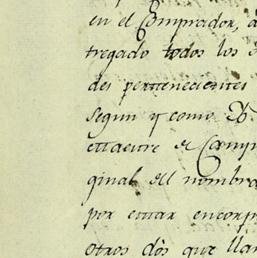 en el Comprador, a
tregado todos los
des pertenecientes
segun y como
Maestre de Camp
ginal del nombra
por estar encorp
otros dos que lla